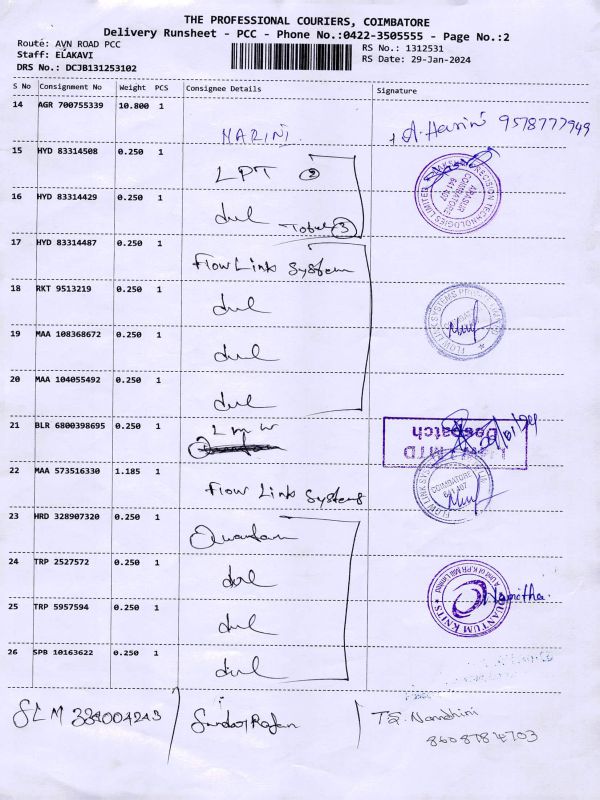 THE PROFESSIONAL COURIERS, COIMBATORE
Delivery Runsheet - PCC - Phone No.:0422-3505555 - Page No.:2
Route: AVN ROAD PCC
RS No.: 1312531
Staff: ELAKAVI
RS Date: 29-Jan-2024
DRS No.: DCJB131253102
S No Consignment No Weight PCS Consignee Details Signature
14 AGR 700755339 10.800 1
HARINI A. Harini 9578777949
15 HYD 83314508 0.250 1
LPT
16 HYD 83314429 0.250 1
Total 3
17 HYD 83314487 0.250 1
Flow Link System
18 RKT 9513219 0.250 1
19 MAA 108368672 0.250 1
20 MAA 104055492 0.250 1
21 BLR 6800398695 0.250 1
LMW
Despatch
22 MAA 573516330 1.185 1
Flow Link Systems
COIMBATORE
641 407
23 HRD 328907320 0.250 1
Quantum
24 TRP 2527572 0.250 1
QUANTUM KNITS
Namitha.
25 TRP 5957594 0.250 1
26 SPB 10163622 0.250 1
SLM T.S. Nandhini